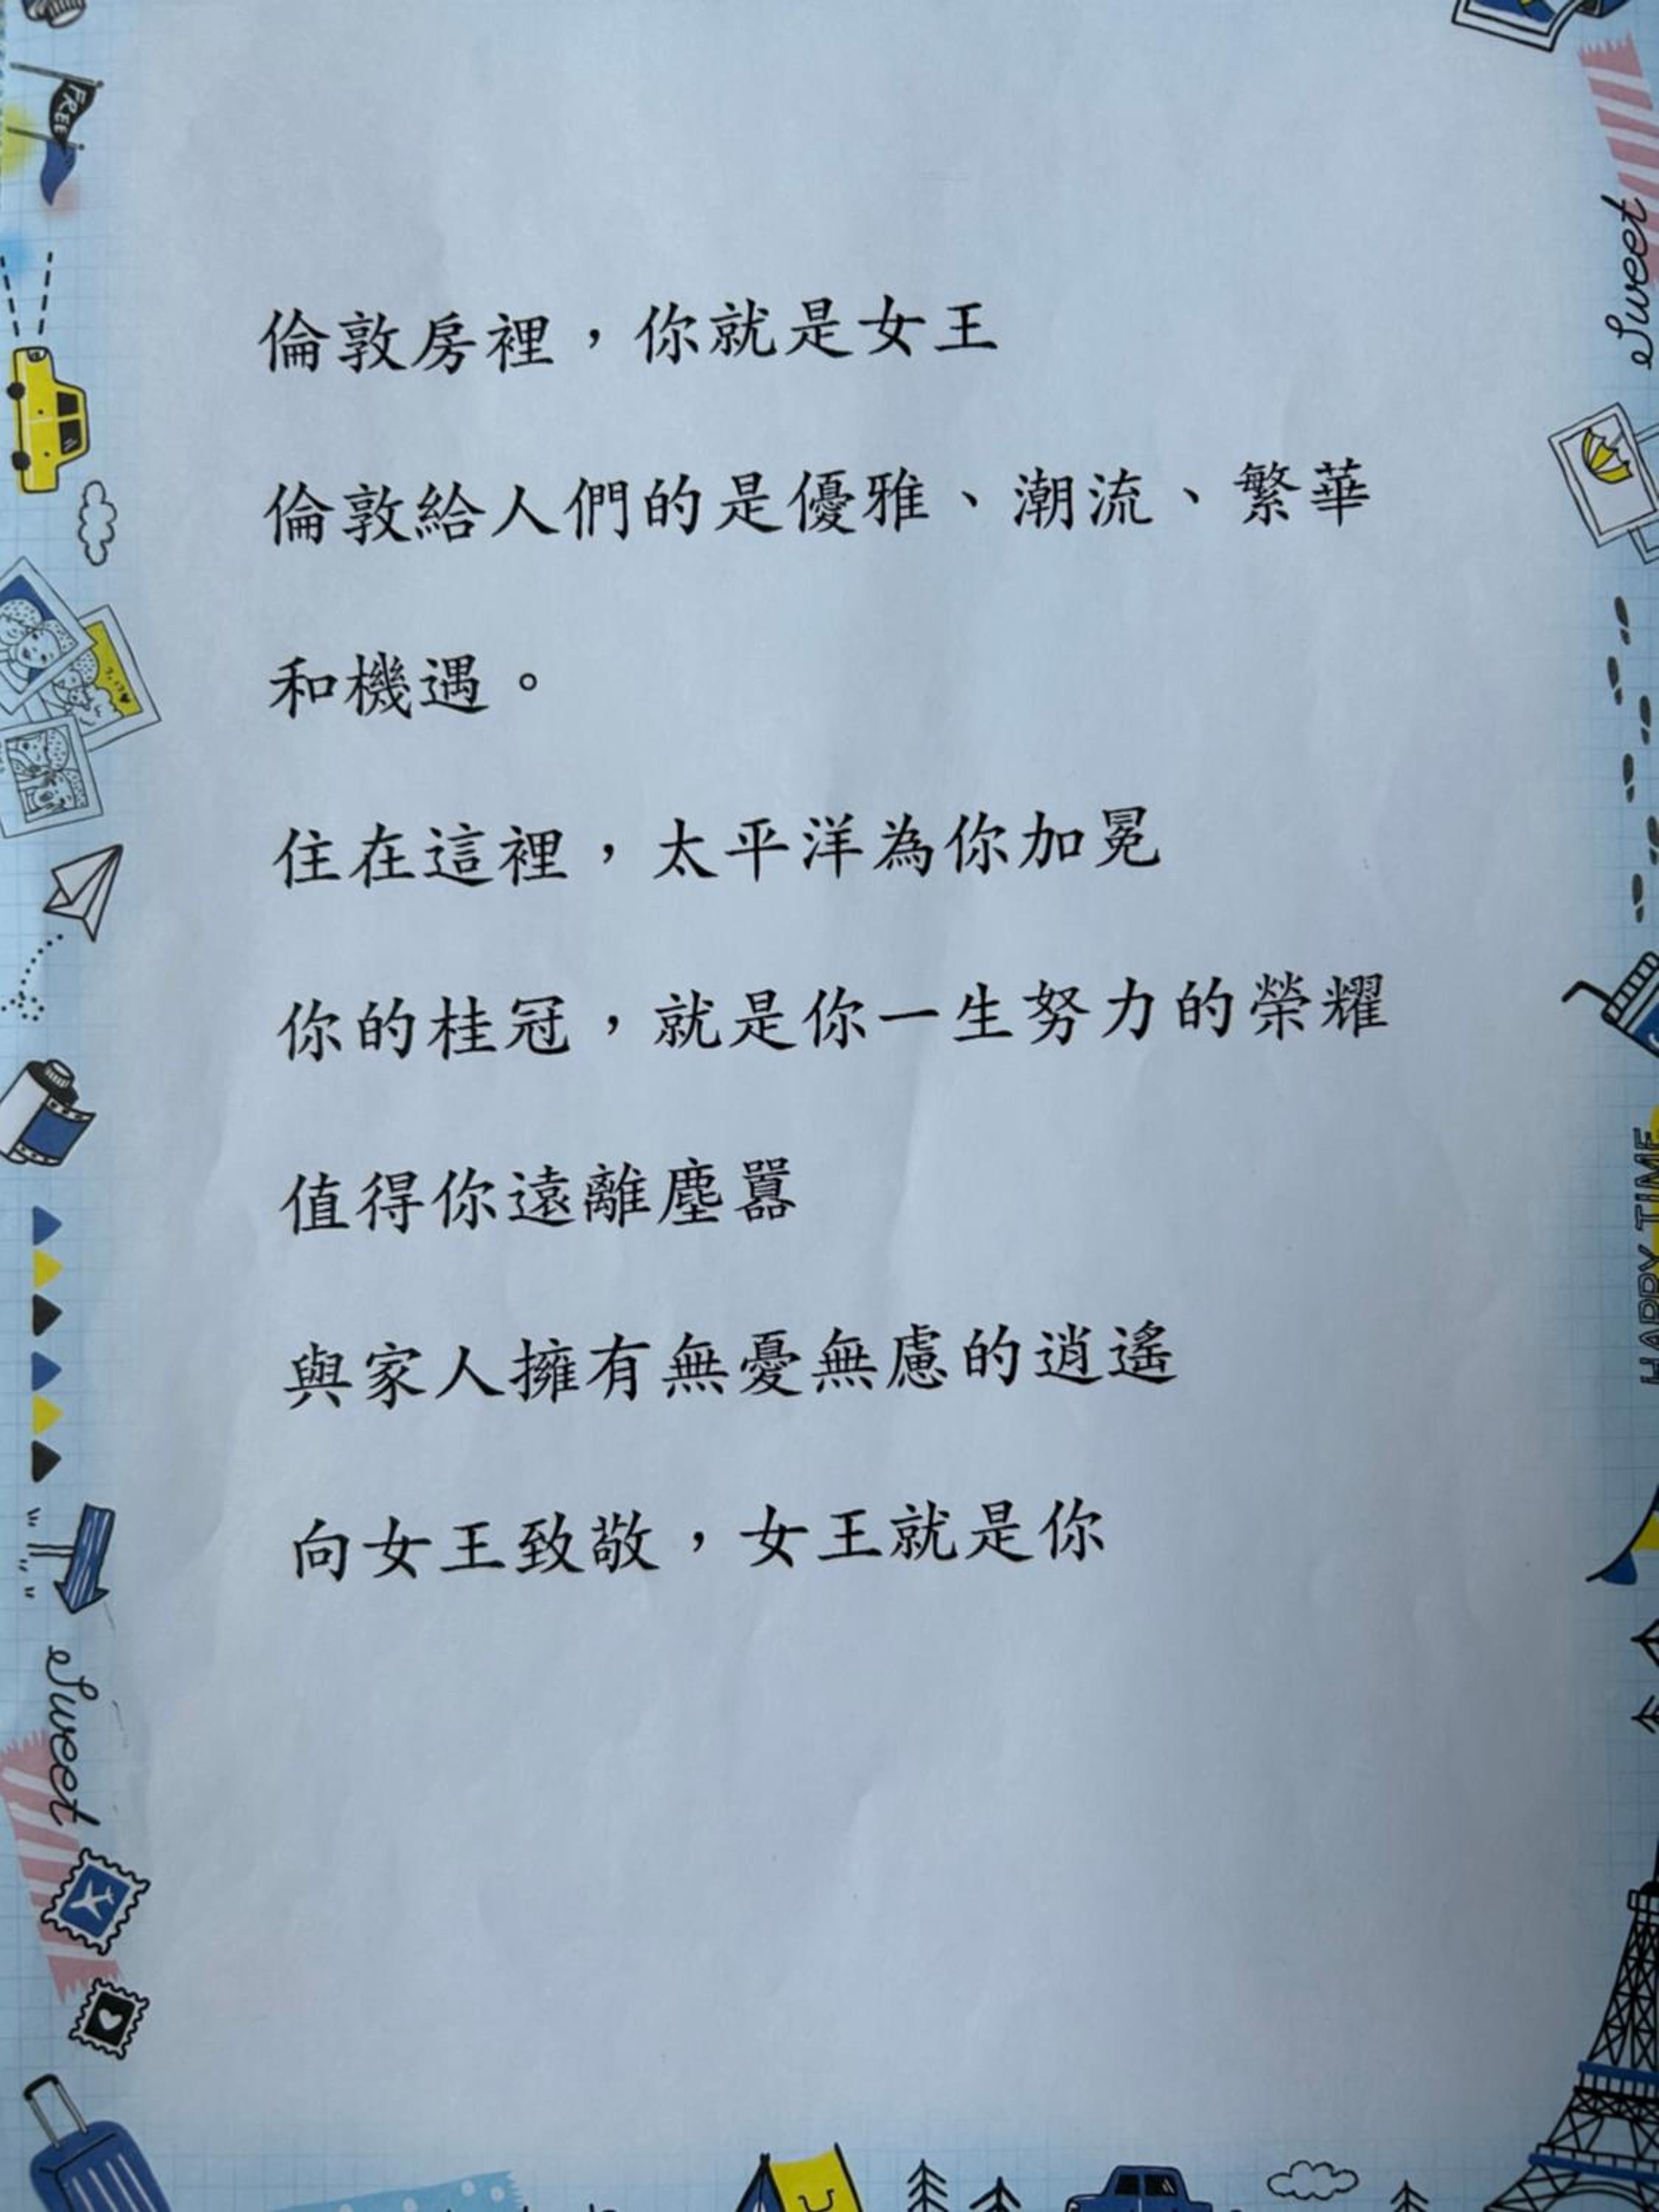 倫敦房裡，你就是女王
倫敦給人們的是優雅、潮流、繁華
和機遇。
住在這裡，太平洋為你加冕
你的桂冠，就是你一生努力的榮耀
值得你遠離塵囂
與家人擁有無憂無慮的逍遙
向女王致敬，女王就是你
FREE
Sweet
Sweet
HAPPY TIME